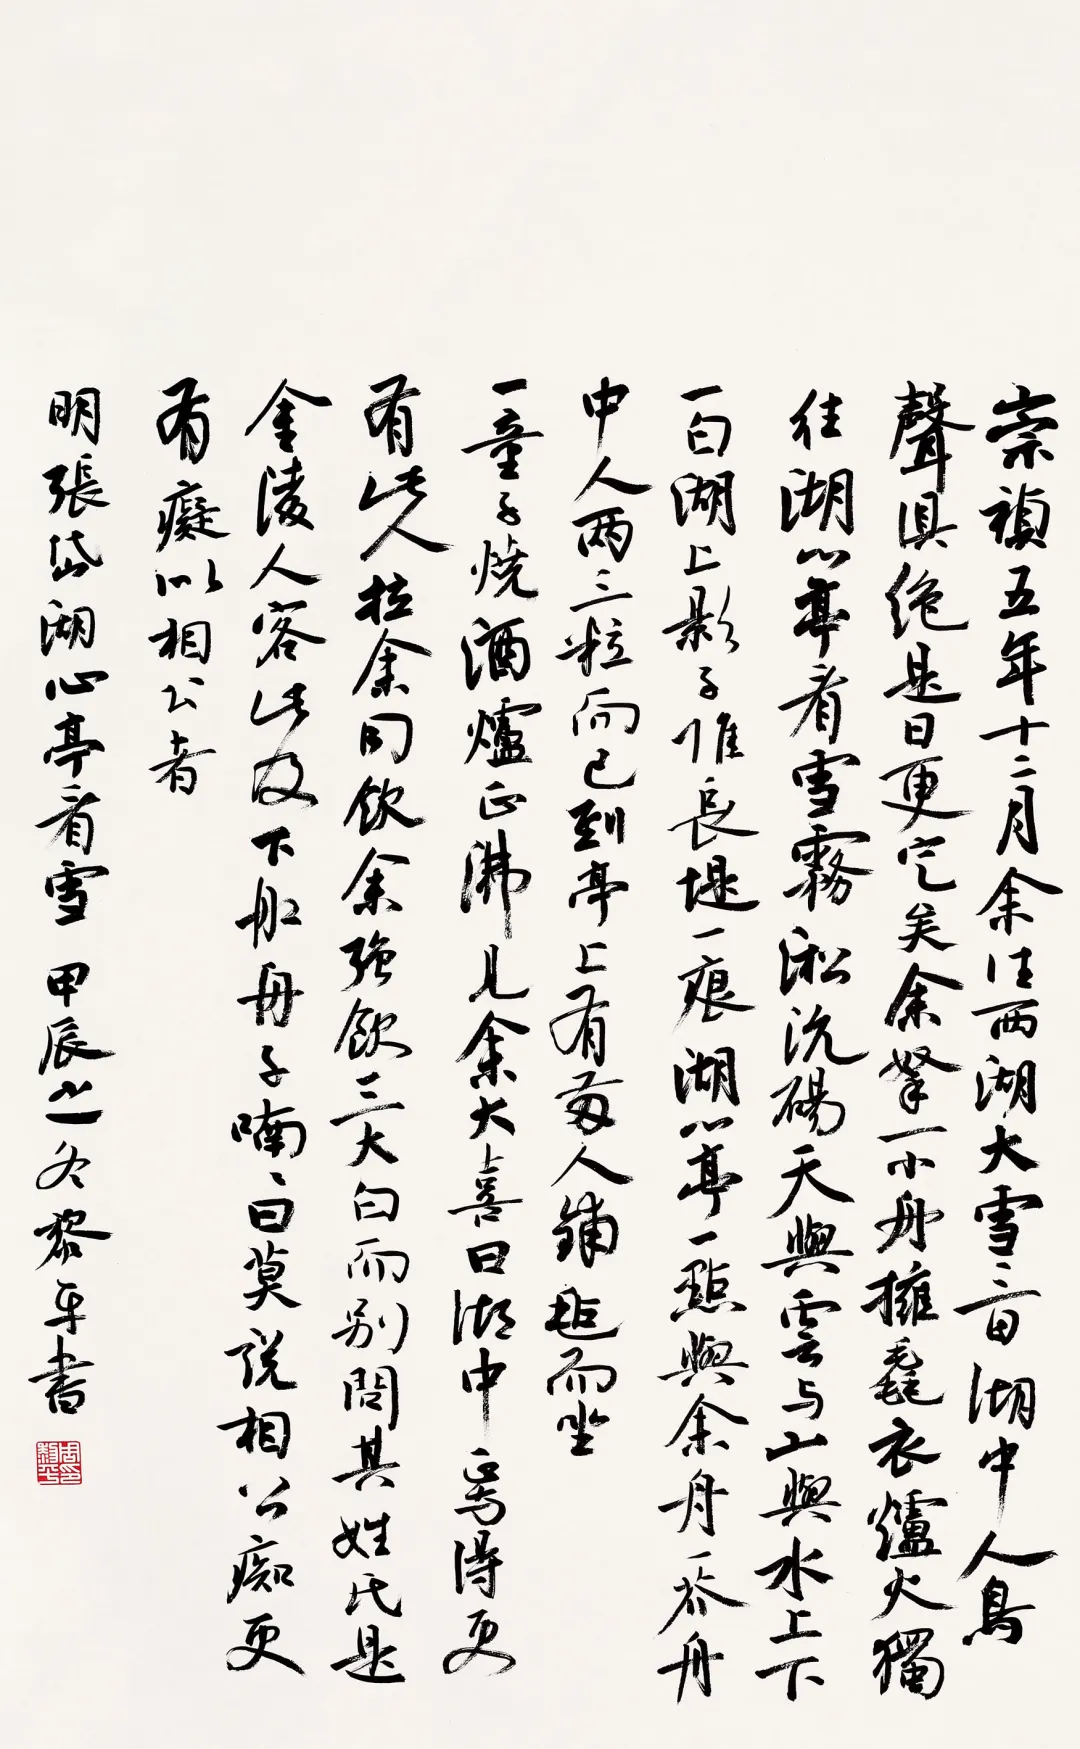 崇禎五年十二月余住西湖大雪三日湖中人鳥
聲俱絕是日更定矣余拏一小舟擁毳衣爐火獨
往湖心亭看雪霧淞沆碭天與雲与山與水上下
一白湖上影子惟長堤一痕湖心亭一點與余舟一芥舟
中人两三粒而已到亭上有兩人鋪氈而坐
一童子燒酒爐正沸見余大喜曰湖中焉得更
有此人拉余同飲余強飲三大白而别問其姓氏是
金陵人客此及下船舟子喃々曰莫説相公痴更
有癡似相公者
明張岱湖心亭看雪 甲辰之冬黎平書